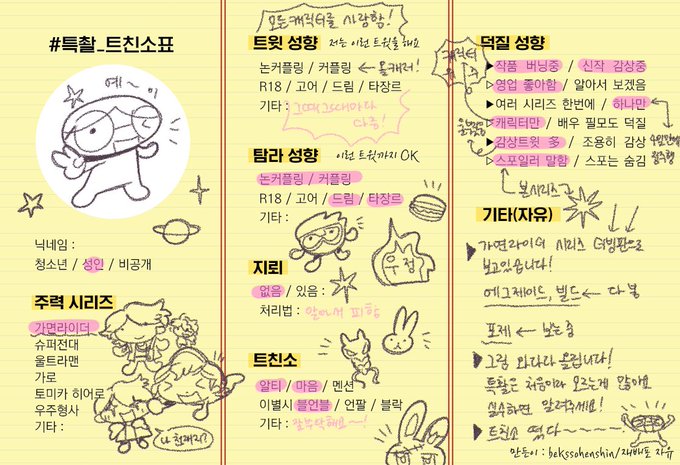 #특촬_트친소표
예~이
닉네임 :
청소년 / 성인 / 비공개
주력 시리즈
가면라이더
슈퍼전대
울트라맨
가로
토미카 히어로
우주형사
기타 :
나 천재지?
모든 캐릭터를 사랑함!
트윗 성향 저는 이런 트윗을 해요
논커플링 / 커플링 ← 올캐러!
R18 / 고어 / 드림 / 타장르
기타 : 그때그때마다
다름!
탐라 성향 이런 트윗까지 OK
논커플링 / 커플링
R18 / 고어 / 드림 / 타장르
기타 :
우정
지뢰
없음 / 있음 :
처리법 : 알아서 피함
트친소
알티 / 마음 / 멘션
이별시 블언블 / 언팔 / 블락
기타 : 잘부탁해요~!
덕질 성향
캐릭터
▶작품 버닝중 / 신작 감상중
▷영업 좋아함 / 알아서 보겠음
▶여러 시리즈 한번에 / 하나만
▷캐릭터만 / 배우 필모도 덕질
▷감상트윗 多 / 조용히 감상
▷스포일러 말함 / 스포는 숨김
본시리즈만
기타(자유)
가면라이더 시리즈 더빙판으로
보고있습니다!
에그제이드, 빌드 ← 다 봄
포제 ← 보는 중
그림 와다다 올립니다!
특촬은 처음이라 모르는게 많아요
실수하면 알려주세요!
트친소 떴다~~~~
만든이 : bekssohenshin/재배포 자유